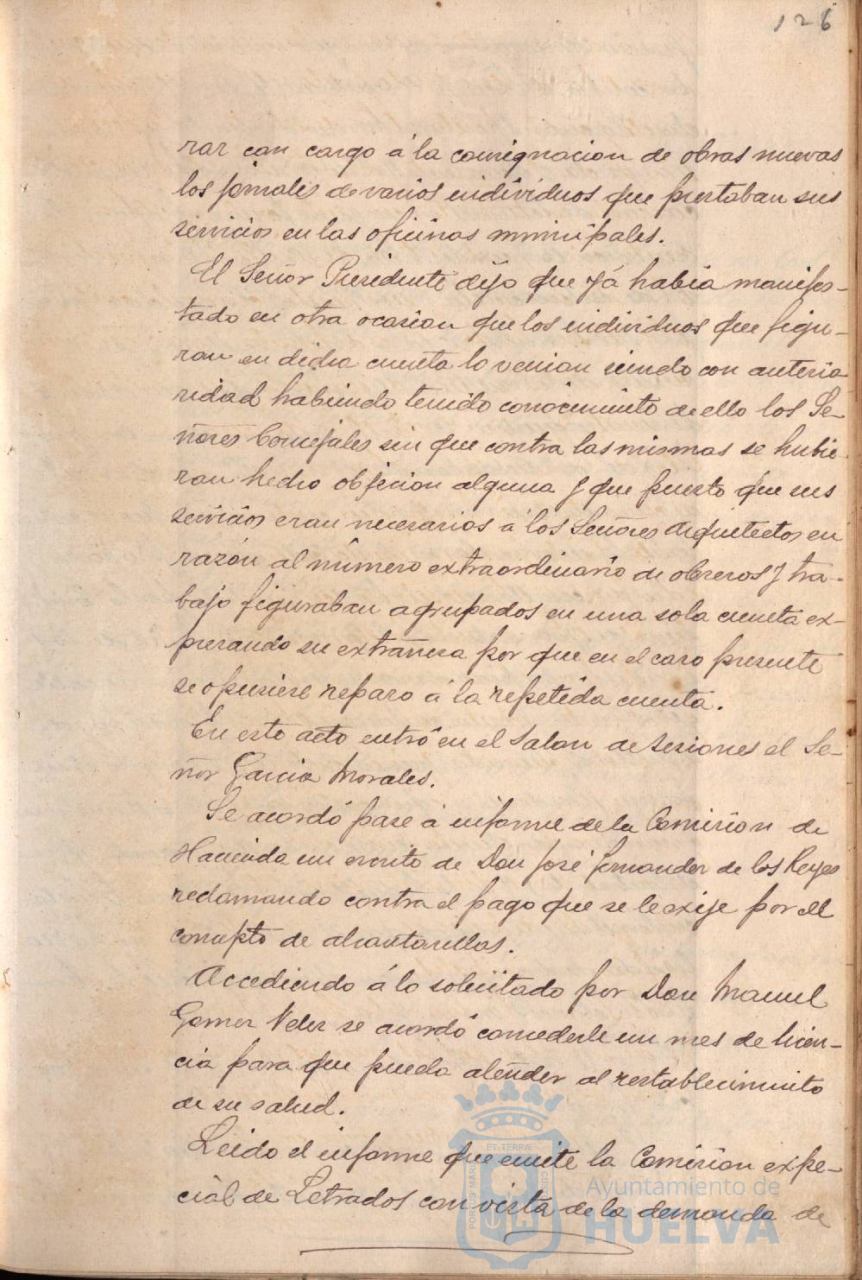 126
rar con cargo á la consignacion de obras nuevas
los jornales de varios individuos que prestaban sus
servicios en las oficinas municipales.
El Señor Presidente dijo que yá habia manifes-
tado en otra ocasion que los individuos que figu-
ran en dicha cuenta lo venian siendo con anterio
ridad habiendo tenido conocimiento de ello los Se-
ñores Concejales sin que contra las mismas se hubie-
ran hecho objecion alguna y que puesto que sus
servicios eran necesarios á los Señores Arquitectos en
razón al número extraordinario de obreros y tra-
bajo figuraban agrupados en una sola cuenta ex-
presando su extrañesa por que en el caso presente
se opusiese reparo á la repetida cuenta.
En este acto entró en el Salon de Sesiones el Se-
ñor Garcia Morales.
Se acordó pase á informe de la Comision de
Hacienda un escrito de Don José Fernandez de los Reyes
reclamando contra el pago que se le exije por el
concepto de alcantarillas.
Accediendo á lo solicitado por Don Manuel
Gomez Velez se acordó concederle un mes de licen-
cia para que pueda atender al restablecimiento
de su salud.
Leido el informe que emite la Comision espe-
cial de Letrados con vista de la demanda de
Ayuntamiento de
HUELVA